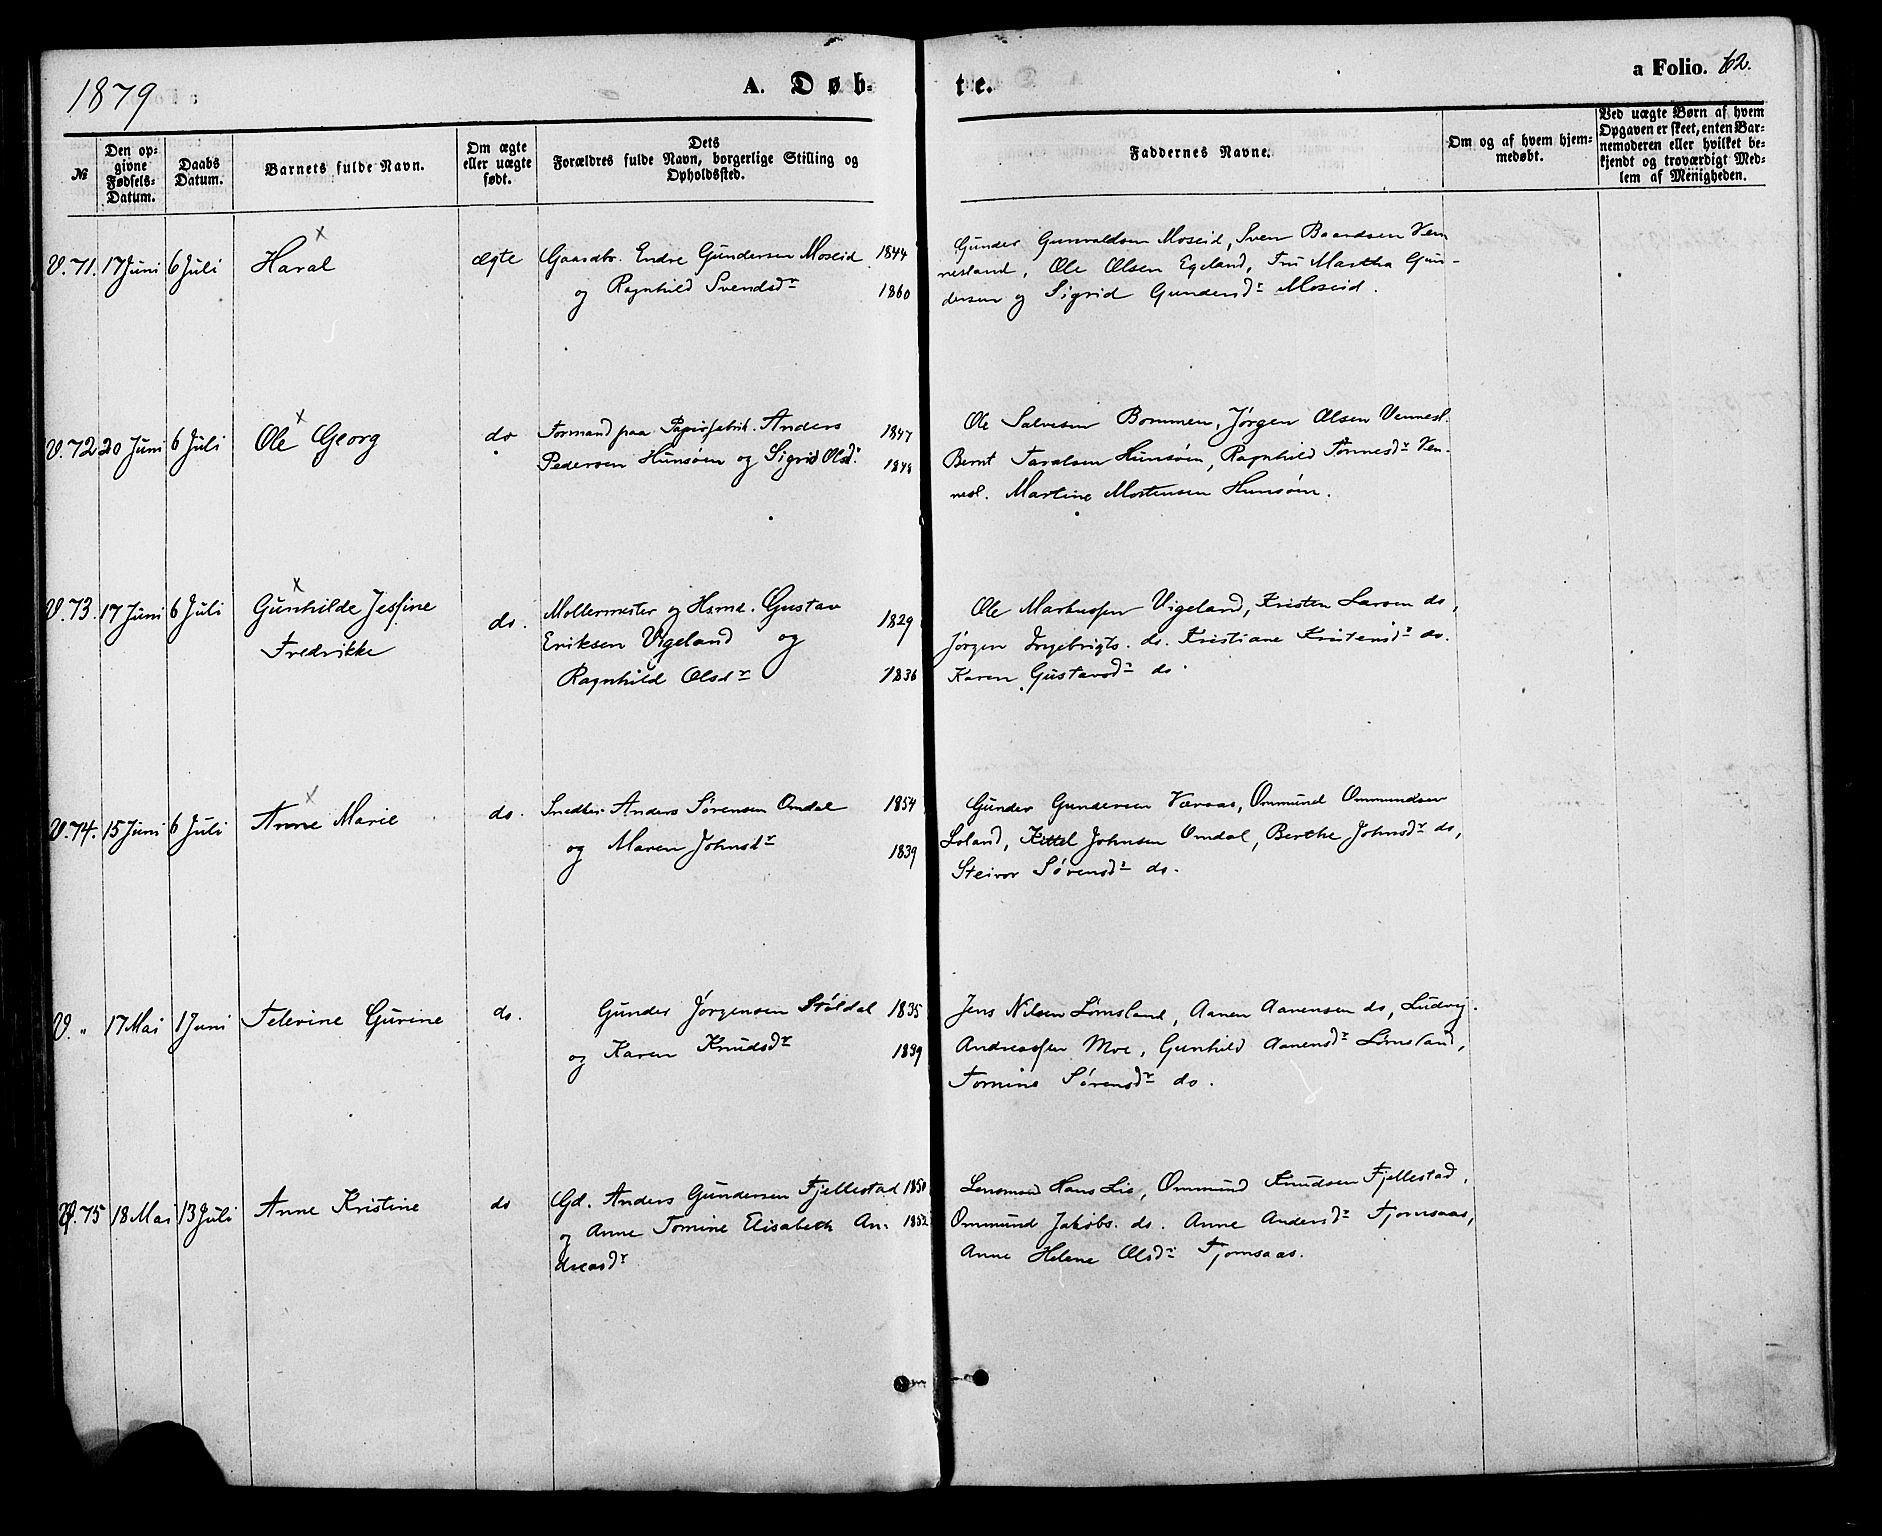 1879
A. Døb-
te.
a Folio. 62.
№
Den op-
givne
Fødsels-
Datum.
Daabs
Datum.
Barnets fulde Navn.
Om ægte
eller uægte
født.
Dets
Forældres fulde Navn, borgerlige Stilling og
Opholdssted.
Faddernes Navne.
Om og af hvem hjem-
medøbt.
Ved uægte Børn af hvem
Opgaven er skeet, enten Bar-
nemoderen eller hvilket be-
kjendt og troværdigt Med-
lem af Menigheden.
V. 71. 17 Juni 6 Juli Haral ægte
Gaardbr. Endre Gundersen Moseid 1844
og Ragnhild Svendsdr 1860
Gunder Gunvaldsen Moseid, Sven Baardsen Ven
nesland, Ole Olsen Egeland, Fru Martha Gun-
dersen og Sigrid Gundersdr Moseid.
V. 72 20 Juni 6 Juli Ole Georg do
Formand paa Papirfabrik. Anders 1847
Pedersen Hunsøen og Sigrid Olsdr. 1848
Ole Salvesen Bommen, Jørgen Olsen Vennesl.
Bernt Taralsen Hunsøen, Ragnhild Tønnesdr Ven-
nesl. Martine Mortensen Hunsøen.
V. 73. 17 Juni 6 Juli Gunhilde Jessine
Fredrikke do.
Møllermester og Hsmd. Gustav 1829
Eriksen Vigeland og
Ragnhild Olsdr 1836
Ole Markussen Vigeland, Kristen Larsen do,
Jørgen Ingebrigts. do. Kristiane Kristensdr do.
Karen Gustavsdr do.
V. 74. 15 Juni 6 Juli Anne Marie do.
Snedker Anders Sørensen Omdal 1854
og Maren Johnsdr 1839
Gunder Gundersen Væraas, Ommund Ommundsen
Loland, Kittel Johnsen Omdal, Berthe Johnsdr do,
Steivor Sørensdr do.
V. " 17 Mai 1 Juni Televine Gurine do.
Gunder Jørgensen Støldal 1835
og Karen Knudsdr 1839
Jens Nilsen Lømsland, Aanen Aanensen do, Ludvig
Andreassen Moe, Gunhild Aanensdr Lømsland,
Tomine Sørensdr do.
V. 75 18 Mai 13 Juli Anne Kristine do
Gd. Anders Gundersen Fjellestad 1850
og Anne Tomine Elisabeth An- 1852
dreasdr
Lensmand Hans Lie, Ommund Knudsen Fjellestad,
Ommund Jakobs. do. Anne Andersdr Fjomsaas,
Anne Helene Olsdr Fjomsaas.